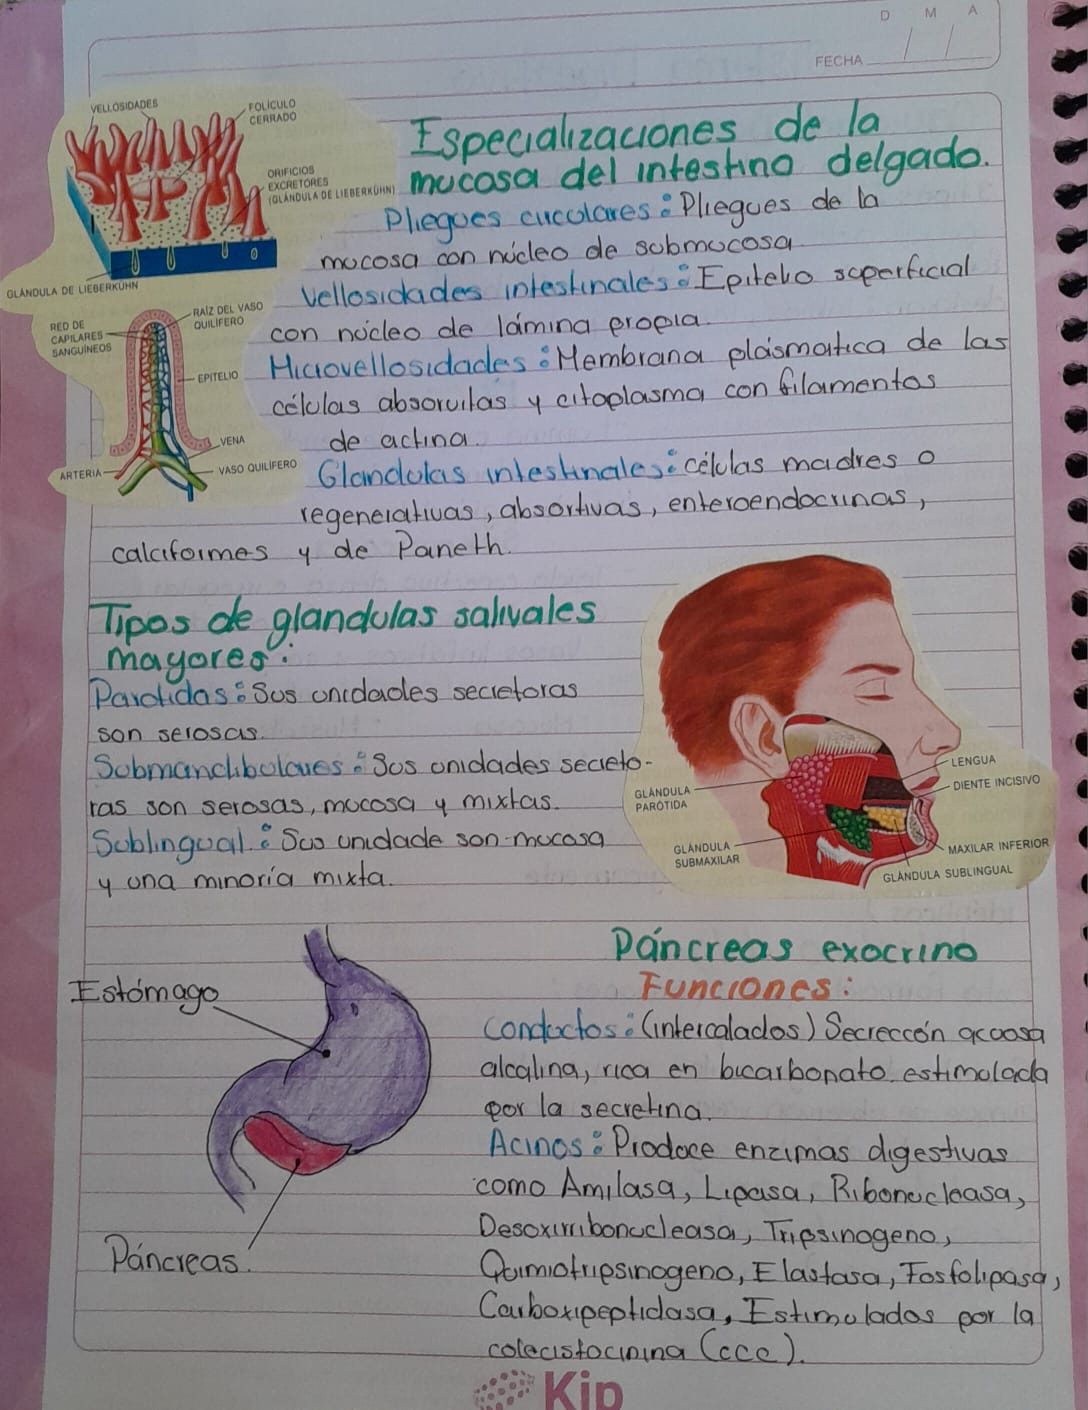 D M A
FECHA
VELLOSIDADES
FOLÍCULO
CERRADO
ORIFICIOS
EXCRETORES
(GLÁNDULA DE LIEBERKÜHN)
GLÁNDULA DE LIEBERKÜHN
RED DE
CAPILARES
SANGUÍNEOS
RAÍZ DEL VASO
QUILÍFERO
EPITELIO
VENA
ARTERIA
VASO QUILÍFERO
Especializaciones de la
mucosa del intestino delgado.
Pliegues circulares: Pliegues de la
mucosa con núcleo de submucosa
Vellosidades intestinales: Epitelio superficial
con núcleo de lámina propia.
Microvellosidades: Membrana plasmática de las
células absorvilas y citoplasma con filamentos
de actina.
Glandulas intestinales: células madres o
regenerativas, absortivas, enteroendocrinas,
calciformes y de Paneth.
Tipos de glandulas salivales
mayores:
Parotidas: Sus unidades secretoras
son serosas.
Submandibulares: Sus unidades secreto-
ras son serosas, mucosa y mixtas.
Sublingual: Sus unidade son mucosa
y una minoría mixta.
GLÁNDULA
PARÓTIDA
GLÁNDULA
SUBMAXILAR
LENGUA
DIENTE INCISIVO
MAXILAR INFERIOR
GLÁNDULA SUBLINGUAL
Estómago
Páncreas.
Páncreas exocrino
Funciones:
Conductos: (intercalados) Secreccón acuosa
alcalina, rica en bicarbonato. estimulada
por la secretina.
Acinos: Produce enzimas digestivas
como Amilasa, Lipasa, Ribonucleasa,
Desoxirribonucleasa, Tripsinogeno,
Quimiotripsinogeno, Elastasa, Fosfolipasa,
Carboxipeptidasa, Estimulados por la
colecistocinina (ccc).
Kip